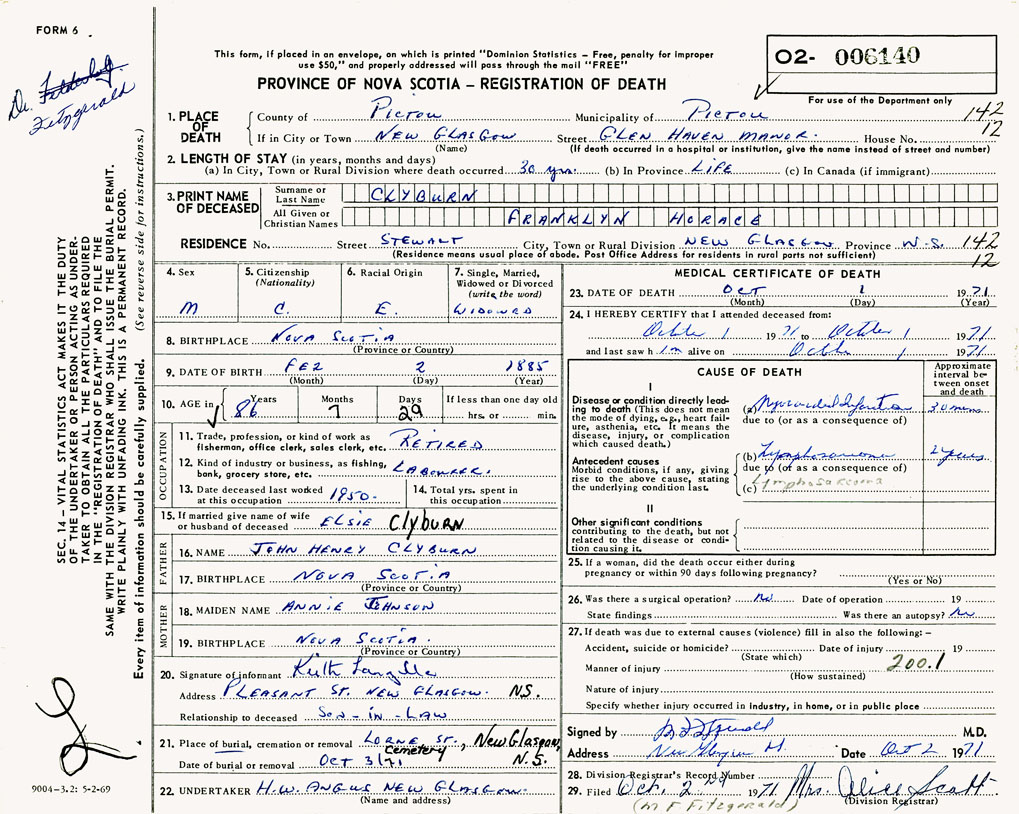 FORM 6
Dr. Fitzgerald
This form, if placed in an envelope, on which is printed "Dominion Statistics – Free, penalty for improper
use $50," and properly addressed will pass through the mail "FREE"
PROVINCE OF NOVA SCOTIA – REGISTRATION OF DEATH
O2- 006140
For use of the Department only
1. PLACE OF DEATH
County of Pictou Municipality of Pictou 142
If in City or Town New Glasgow Street Glen Haven Manor. House No. 12
(Name) (If death occurred in a hospital or institution, give the name instead of street and number)
2. LENGTH OF STAY (in years, months and days)
(a) In City, Town or Rural Division where death occurred 30 yrs. (b) In Province Life (c) In Canada (if immigrant)
3. PRINT NAME OF DECEASED
Surname or Last Name CLYBURN
All Given or Christian Names FRANKLYN HORACE
RESIDENCE No. Street Stewalt City, Town or Rural Division New Glasgow Province N.S. 142
(Residence means usual place of abode. Post Office Address for residents in rural parts not sufficient) 12
4. Sex
M
5. Citizenship
(Nationality)
C.
6. Racial Origin
E.
7. Single, Married,
Widowed or Divorced
(write the word)
Widowed
8. BIRTHPLACE Nova Scotia
(Province or Country)
9. DATE OF BIRTH Feb 2 1885
(Month) (Day) (Year)
10. AGE in Years Months Days If less than one day old
86 7 29 hrs. or min.
OCCUPATION
11. Trade, profession, or kind of work as
fisherman, office clerk, sales clerk, etc. Retired
12. Kind of industry or business, as fishing,
bank, grocery store, etc. Labourer.
13. Date deceased last worked
at this occupation 1950.
14. Total yrs. spent in
this occupation
15. If married give name of wife
or husband of deceased Elsie Clyburn
FATHER
16. NAME John Henry Clyburn
17. BIRTHPLACE Nova Scotia
(Province or Country)
MOTHER
18. MAIDEN NAME Annie Johnson
19. BIRTHPLACE Nova Scotia.
(Province or Country)
20. Signature of informant Keith Langille
Address Pleasant St. New Glasgow. N.S.
Relationship to deceased Son-in-Law
21. Place of burial, cremation or removal Lorne St., New Glasgow,
Cemetery N.S.
Date of burial or removal Oct 3/71
22. UNDERTAKER H.W. Angus New Glasgow.
(Name and address)
MEDICAL CERTIFICATE OF DEATH
23. DATE OF DEATH Oct 1 1971
(Month) (Day) (Year)
24. I HEREBY CERTIFY that I attended deceased from:
October 1 1971 to October 1 1971
and last saw him alive on October 1 1971
CAUSE OF DEATH
Approximate
interval be-
tween onset
and death
I
Disease or condition directly lead-
ing to death (This does not mean
the mode of dying, e.g., heart fail-
ure, asthenia, etc. It means the
disease, injury, or complication
which caused death.)
(a) Myocardial Infarction 30 mins
due to (or as a consequence of)
Antecedent causes
Morbid conditions, if any, giving
rise to the above cause, stating
the underlying condition last.
(b) Lymphosarcoma 2 years
due to (or as a consequence of)
Lymphosarcoma
(c)
II
Other significant conditions
contributing to the death, but not
related to the disease or condi-
tion causing it.
25. If a woman, did the death occur either during
pregnancy or within 90 days following pregnancy?
(Yes or No)
26. Was there a surgical operation? No Date of operation 19
State findings Was there an autopsy? No
27. If death was due to external causes (violence) fill in also the following: –
Accident, suicide or homicide? Date of injury 19
(State which) 200.1
Manner of injury
(How sustained)
Nature of injury
Specify whether injury occurred in industry, in home, or in public place
Signed by M.D.
Address New Glasgow Date Oct 2 1971
28. Division Registrar's Record Number
29. Filed Oct. 2nd 1971 Mrs. Alice Scott.
(M F Fitzgerald) (Division Registrar)
SEC. 14 – VITAL STATISTICS ACT MAKES IT THE DUTY
OF THE UNDERTAKER OR PERSON ACTING AS UNDER-
TAKER TO OBTAIN ALL THE PARTICULARS REQUIRED
IN THE "REGISTRATION OF DEATH" AND TO FILE THE
SAME WITH THE DIVISION REGISTRAR WHO SHALL ISSUE THE BURIAL PERMIT.
WRITE PLAINLY WITH UNFADING INK. THIS IS A PERMANENT RECORD.
Every item of information should be carefully supplied. (See reverse side for instructions.)
9004-3.2: 5-2-69